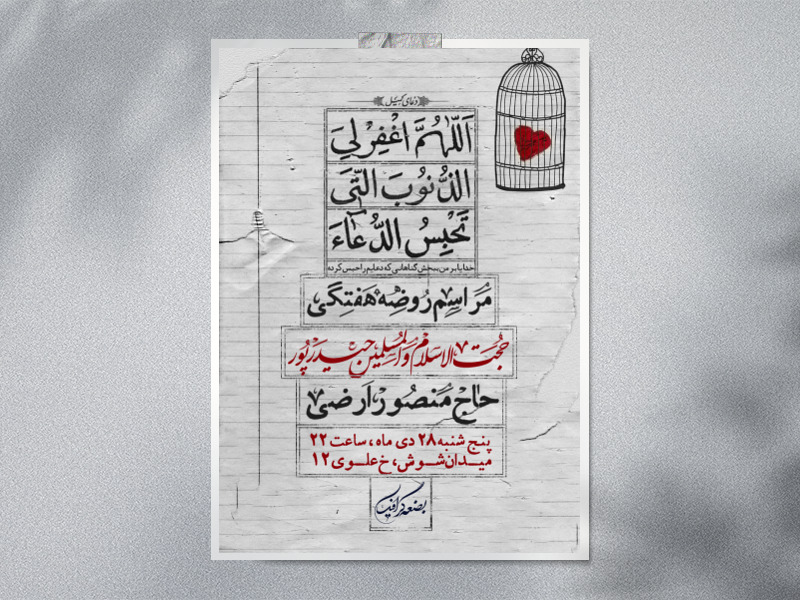 دعای کمیل
اَللّٰهُمَّ اغْفِرْ لِيَ
الذُّنُوبَ الَّتِي
تَحْبِسُ الدُّعَاءَ
خدایا بر من ببخش گناهانی که دعایم را حبس کرده
مراسم روضه هفتگی
حجت الاسلام والمسلمین حیدرپور
حاج منصور ارضی
پنج شنبه ۲۸ دی ماه، ساعت ۲۲
میدان شوش، خ علوی ۱۲
بضعه گرافیک